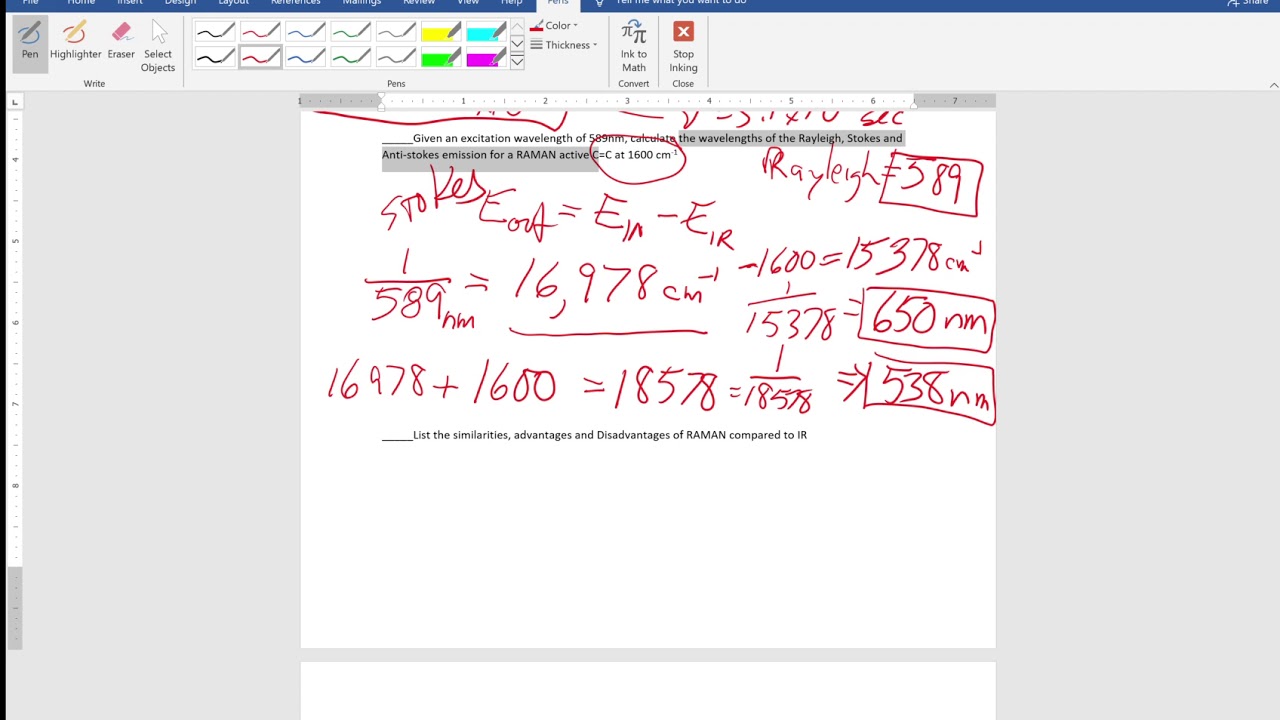 File Home Insert Design Layout References Mailings Review View Help Pens Tell me what you want to do Share
Pen Highlighter Eraser Select Objects
Color
Thickness
Ink to Math
Stop Inking
Write Pens Convert Close
1 1 2 3 4 5 6 7
sec
_____Given an excitation wavelength of 589nm, calculate the wavelengths of the Rayleigh, Stokes and
Anti-stokes emission for a RAMAN active C=C at 1600 cm-1
Rayleigh = 589
Stokes E out = E IN - E IR
1/589nm = 16,978 cm-1 -1600 = 15378 cm-1
1/15378 = 650 nm
16978 + 1600 = 18578 = 1/18578 => 538 nm
_____List the similarities, advantages and Disadvantages of RAMAN compared to IR
4
5
6
7
8